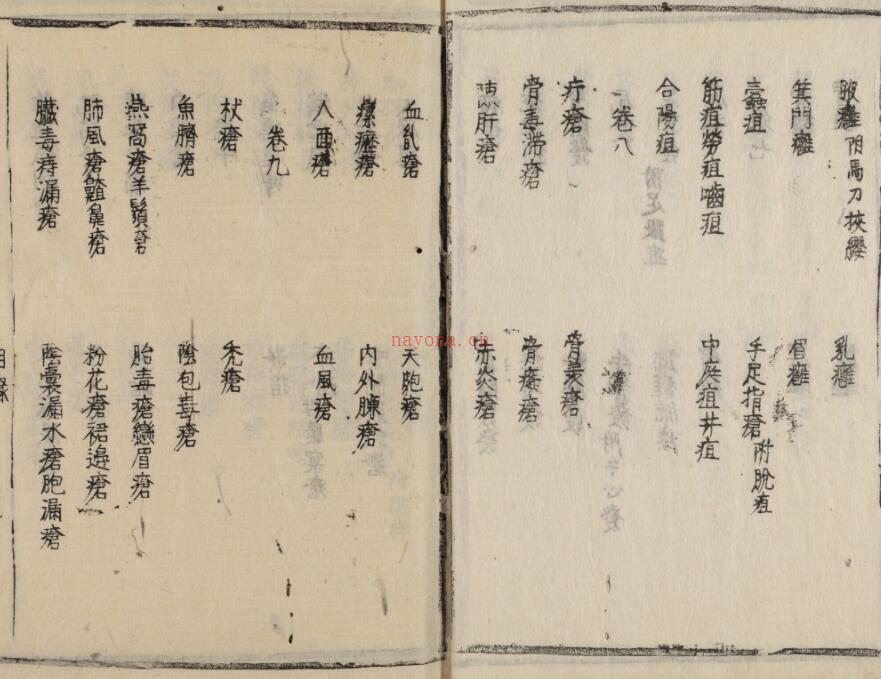 腋癰 附馬刀挾癭
乳癰
箕門癰
眉癰
蠹疽
手足指瘡 附脫疽
筋疽勞疽嚙疽
中庭疽井疽
合陽疽
卷八
疔瘡
骨羨瘡
骨毒滯瘡
骨痿瘡
肝瘡
赤炎瘡
血瘡
天皰瘡
瘰癧瘡
內外臁瘡
人面瘡
血風瘡
卷九
杖瘡
禿瘡
魚臍瘡
陰包毒瘡
燕窩瘡羊鬚瘡
胎毒瘡戀眉瘡
肺風瘡齇鼻瘡
粉花瘡裙邊瘡
臟毒痔漏瘡
陰囊漏水瘡胞漏瘡
目錄
nayona.cn